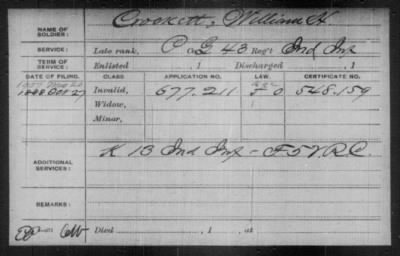 NAME OF SOLDIER: Crockett, William H
SERVICE: Late rank, P Co. G 43 Reg't Ind Inf
TERM OF SERVICE: Enlisted , 1 Discharged , 1
DATE OF FILING. CLASS APPLICATION NO. LAW. CERTIFICATE NO.
1888 Oct 27 Invalid, 677.211 548.159
Widow,
Minor,
ADDITIONAL SERVICES: K 13 Ind Inf - F 5 V.R.C.
REMARKS:
Died , 1 , at